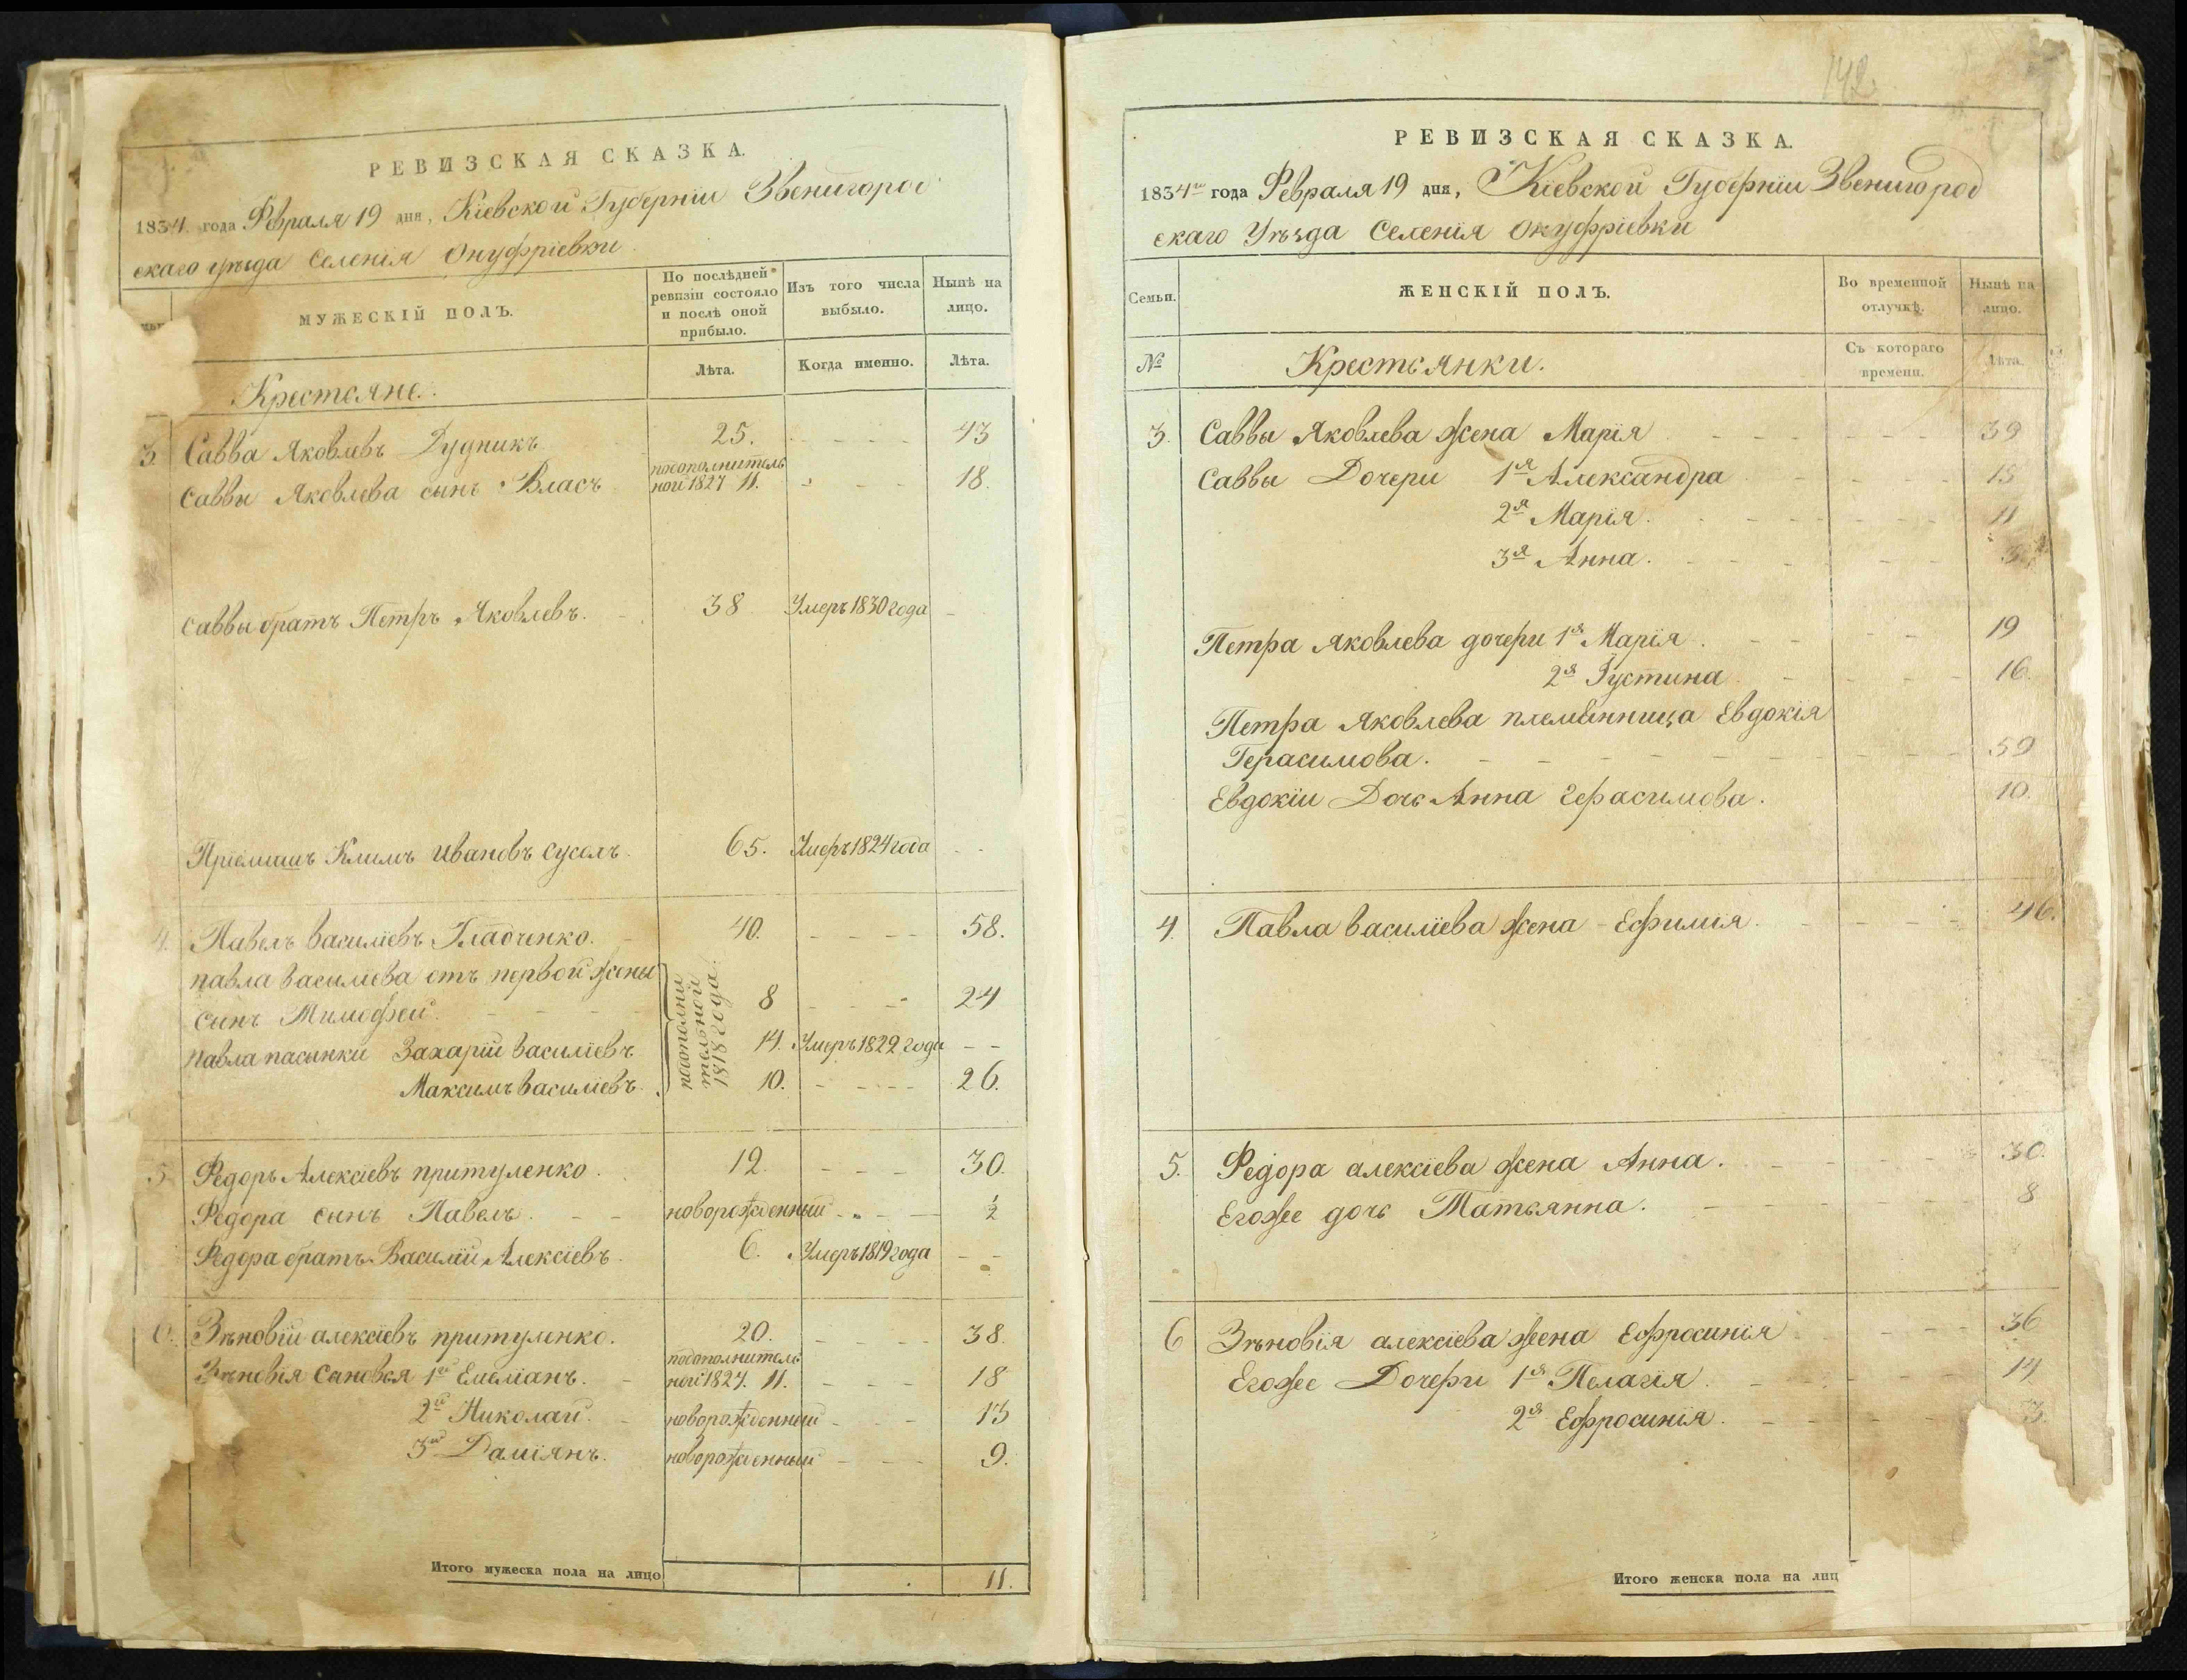 РЕВИЗСКАЯ СКАЗКА.
1834. года Февраля 19 дня, Кіевской Губерніи Звенигород
скаго уѣзда Селенія Онуфріевки
МУЖЕСКІЙ ПОЛЪ.
По послѣдней ревизіи состояло и послѣ оной прибыло.
Изъ того числа выбыло.
Нынѣ на лицо.
Лѣта. Когда именно. Лѣта.
Крестьяне.
3. Савва Яковлевъ Дудникъ 25. 43
Саввы Яковлева сынъ Власъ подополнитель ной 1827 11. 18.
Саввы братъ Петръ Яковлевъ. 38 Умеръ 1830 года
Пріемишъ Климъ Ивановъ 65. Умеръ 1824 года
4. Павелъ Василіевъ Гладченко. 40. 58.
Павла Василіева отъ первой жены
сынъ 8 24
Павла пасынки Захарій Василіевъ 14. Умеръ 1822 года
Максимъ Василіевъ. 10. 26.
подополни
тельной
1818 года.
5 Федоръ Алексіевъ притуленко. 12. 30.
Федора сынъ Павелъ. новорожденный ½
Федора братъ Василій Алексіевъ. 6. Умеръ 1819 года
6. Зѣновій алексіевъ притуленко. 20. 38.
Зѣновія Сановья 1й Емеліанъ. подополнитель ной 1827. 11. 18
2й Николай. новорожденный 13
3й Даміянъ. новорожденный 9.
Итого мужеска пола на лицо 11.
142
РЕВИЗСКАЯ СКАЗКА.
1834го года Февраля 19 дня, Кіевской Губерніи Звенигород
скаго Уѣзда Селенія Онуфріевки
Семьи. ЖЕНСКІЙ ПОЛЪ.
Во временной отлучкѣ.
Нынѣ на лицо.
№ Крестьянки.
Съ котораго времени.
Лѣта.
3. Саввы Яковлева жена Марія 39
Саввы Дочери 1я Александра 15
2я Марія. 11
3я Анна. 3.
Петра Яковлева дочери 1я Марія. 19
2я Густина 16.
Петра Яковлева племѣнница Евдокія
Герасимова. 59
Евдокіи Дочь Анна Герасимова. 10.
4. Павла Василіева жена Ефимія. 46.
5. Федора алексіева жена Анна. 30.
Егоже дочь Татьянна. 8
6 Зѣновія алексіева жена Ефросинія 36
Егоже Дочери 1я Пелагія. 14
2я Ефросинія. 3.
Итого женска пола на лиц